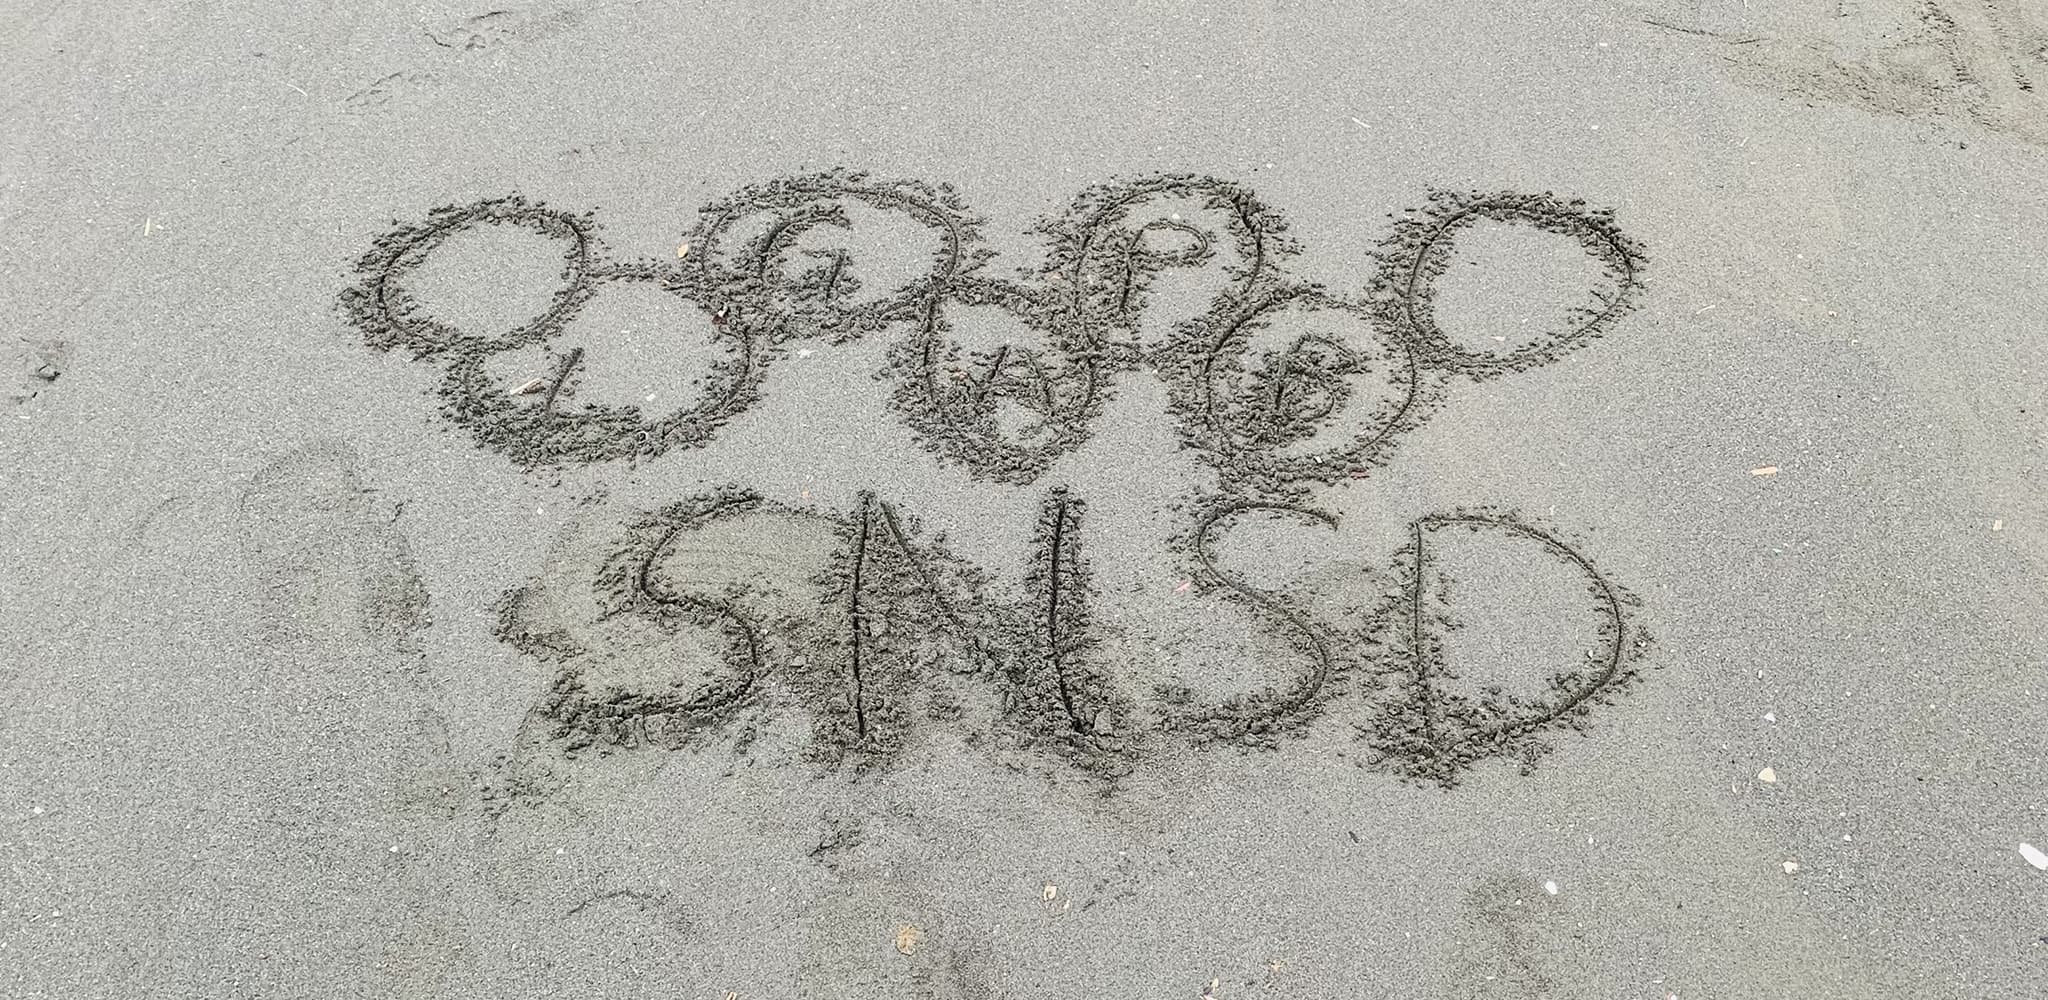 G P
L A B
SNSD